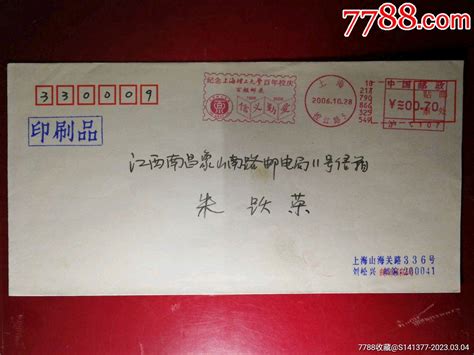 7788.com
330009
印刷品
纪念上海理工大学百年校庆
信义勤爱
上海
2006.10.28
中国邮政
¥00.70
江西南昌象山南路邮电局11号信箱
朱跃荣
上海山海关路336号
刘松兴 邮编200041
7788收藏@S141377-2023.03.04